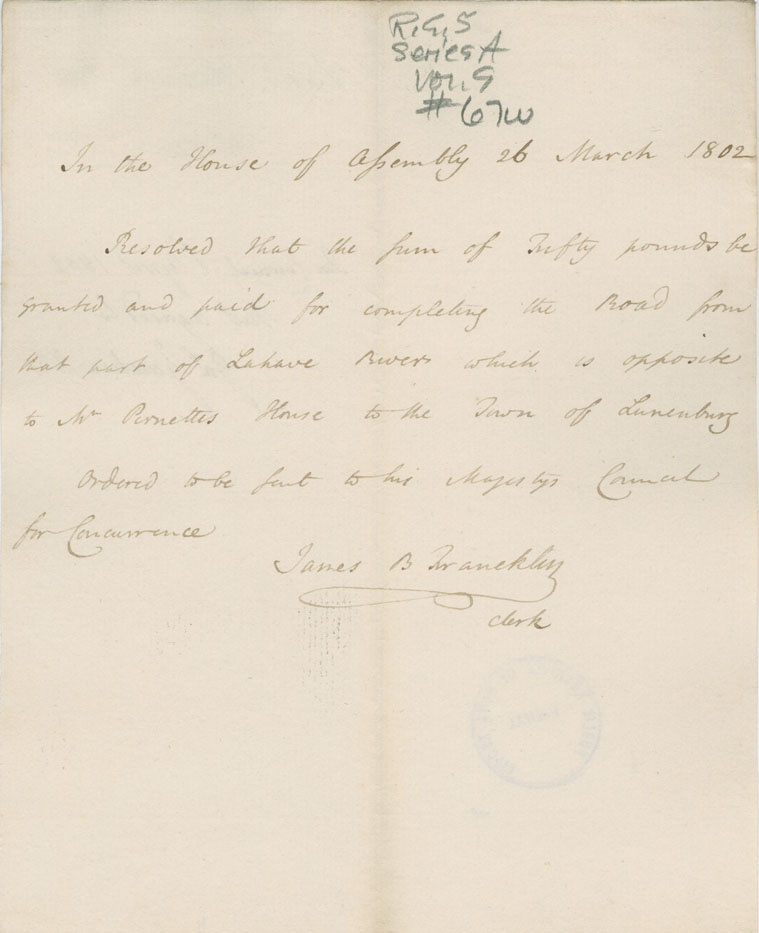 R.G. 5
Series A
Vol. 9
# 67w
In the House of Assembly 26 March 1802
Resolved that the sum of Fifty pounds be
granted and paid for completing the Road from
that part of Lahave River which is opposite
to Mr Pernettes House to the Town of Lunenburg
Ordered to be sent to his Majestys Council
for Concurrence
James B Francklin
Clerk